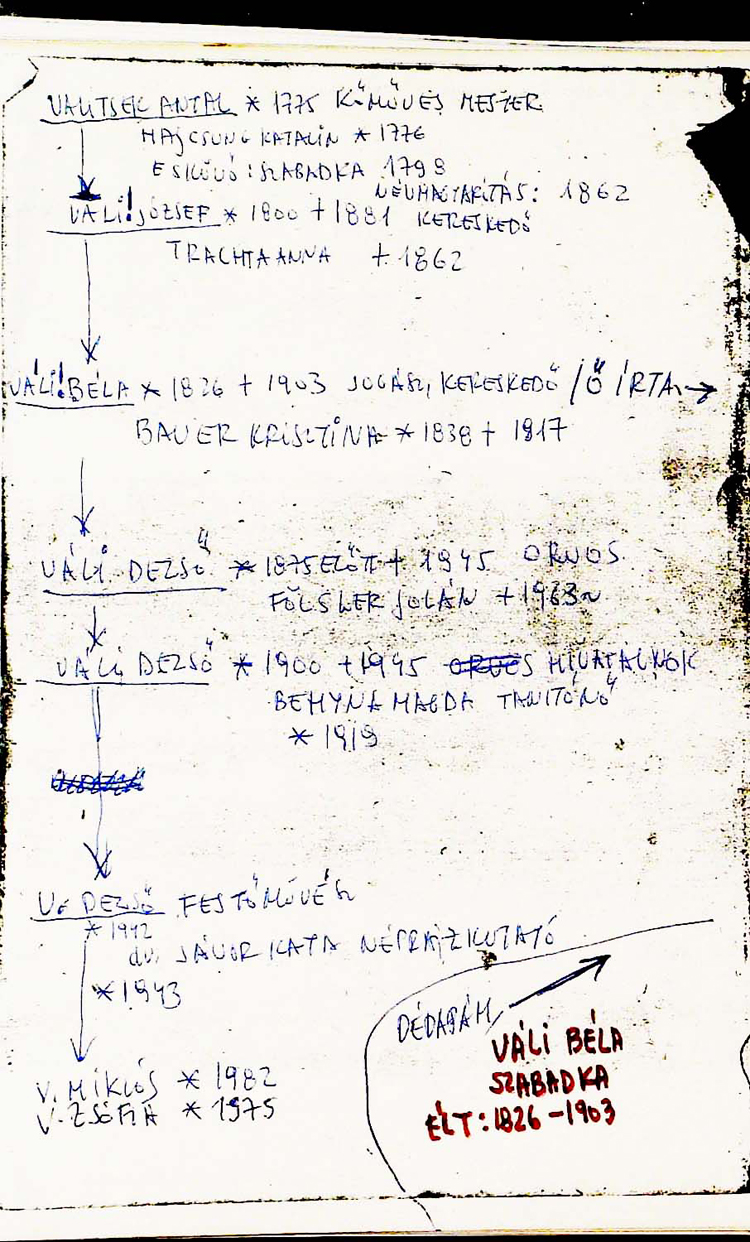 VALITSEK ANTAL * 1775 KŐMŰVES MESTER
HAJCSUNG KATALIN * 1776
ESKÜVŐ: SZABADKA 1798
NÉVMAGYARÍTÁS: 1862
VÁLI! JÓZSEF * 1800 + 1881 KERESKEDŐ
TRACHTA ANNA + 1862
VÁLI! BÉLA * 1826 + 1903 JOGÁSZ, KERESKEDŐ /Ő ÍRTA →
BAUER KRISZTINA * 1838 + 1917
VÁLI DEZSŐ * 1875 ELŐTT + 1945 ORVOS
JOLÁN + 1963
VÁLI DEZSŐ * 1900 + 1945 ORVOS HIVATALNOK
BEHYNA MAGDA TANÍTÓNŐ
* 1919
V. DEZSŐ FESTŐMŰVÉSZ
* 1942
dr. JÁVOR KATA NÉPRAJZKUTATÓ
* 1943
DÉDAPÁM
VÁLI BÉLA
SZABADKA
ÉLT: 1826-1903
V. MIKLÓS * 1982
V. ZSÓFIA * 1975